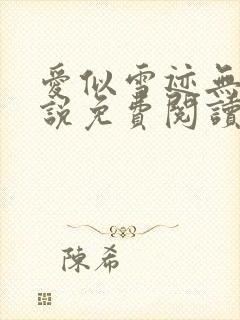 愛似雪迹無
說免費閱讀
陳希